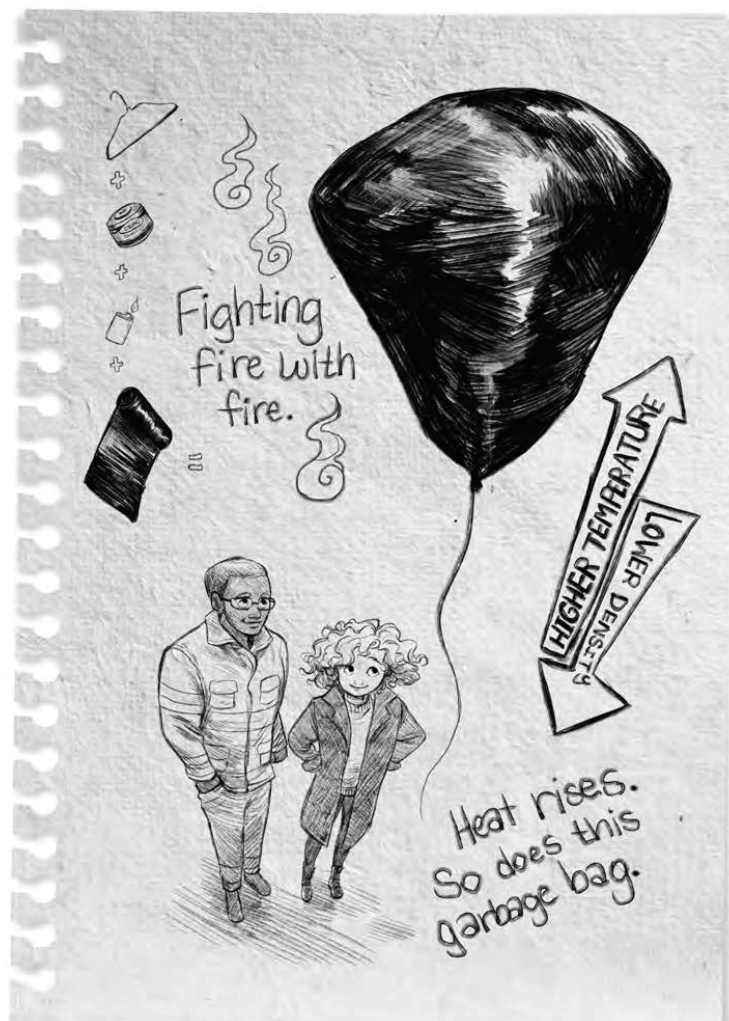 Fighting
fire with
fire.
HIGHER TEMPERATURE
LOWER DENSITY
Heat rises.
So does this
garbage bag.